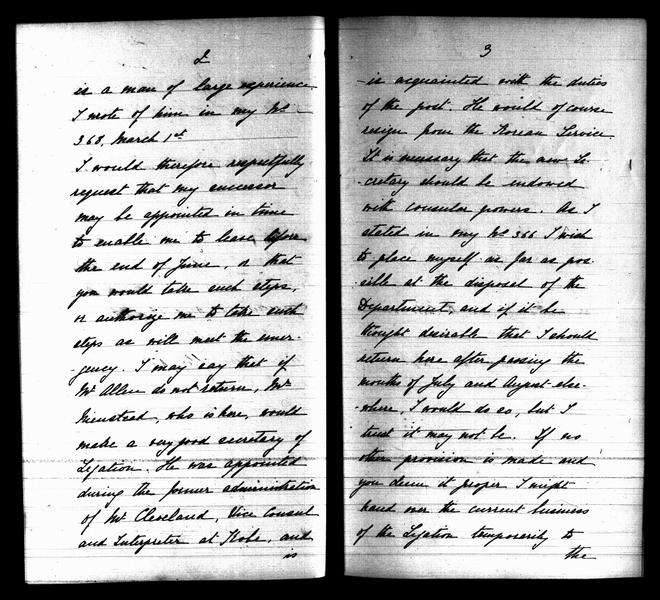 2
is a man of large experience
I wrote of him in my No
368, March 1st
I would therefore respectfully
request that my successor
may be appointed in time
to enable me to leave before
the end of June, or that
you would take such steps,
or authorize me to take such
steps as will meet the emer-
gency. I may say that if
Mr Allen do not return, Mr
Nienstead, who is here, would
make a very good secretary of
Legation. He was appointed
during the former administration
of Mr Cleveland, Vice Consul
and Interpreter at Kobe, and
is
3
is acquainted with the duties
of the post. He would of course
resign from the Korean Service
It is necessary that the new Se-
cretary should be endowed
with consular powers. As I
stated in my No 366 I wish
to place myself as far as pos-
sible at the disposal of the
Department, and if it be
thought desirable that I should
return here after passing the
months of July and August else-
where, I would do so, but I
trust it may not be. If no
other provision is made and
you deem it proper I might
hand over the current business
of the Legation temporarily to
the